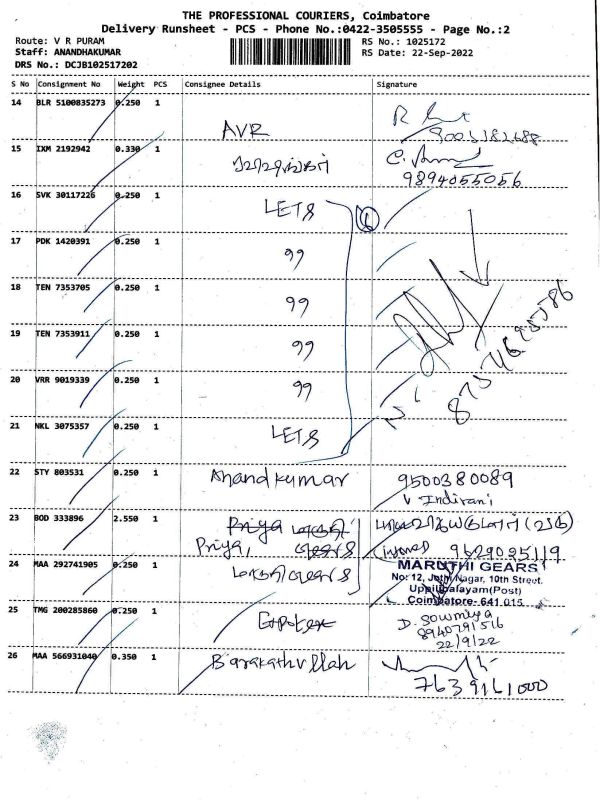 THE PROFESSIONAL COURIERS, Coimbatore
Delivery Runsheet - PCS - Phone No.:0422-3505555 - Page No.:2
Route: V R PURAM
Staff: ANANDHAKUMAR
DRS No.: DCJB102517202
RS No.: 1025172
RS Date: 22-Sep-2022
S No Consignment No Weight PCS Consignee Details Signature
14 BLR 5100835273 0.250 1 AVR
15 IXM 2192942 0.330 1 9894055056
16 SVK 30117226 0.250 1 LETS 6
17 PDK 1420391 0.250 1 99
18 TEN 7353705 0.250 1 99
19 TEN 7353911 0.250 1 99
20 VRR 9019339 0.250 1 99
21 NKL 3075357 0.250 1 LETS
22 STY 803531 0.250 1 Anandkumar 9500380089
V Indirani
23 BOD 333896 2.550 1 Priya
Priya, 9629025119
24 MAA 292741905 0.250 1 மாருதி கியர்ஸ்
MARUTHI GEARS
No: 12, Jothi Nagar, 10th Street,
Uppilipalayam(Post)
Coimbatore- 641 015
25 TMG 200285860 0.250 1 D. Sowmiya
8940791516
22/9/22
26 MAA 566931040 0.350 1 Barakathullah
7639161000